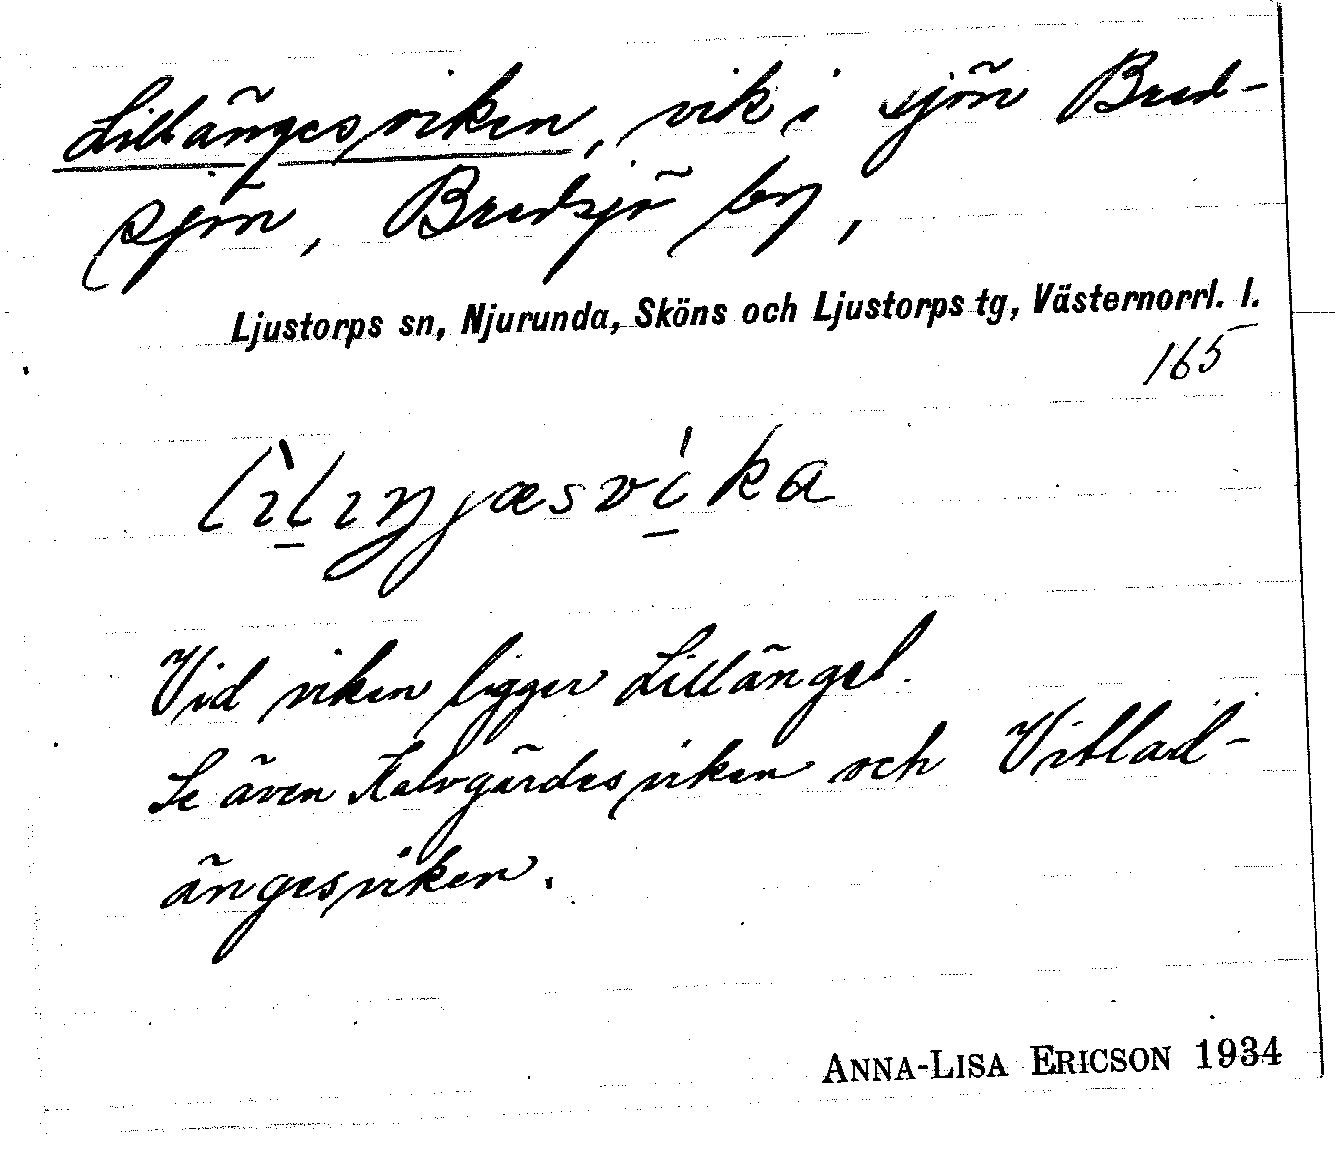 Lillängesviken, vik i sjön Bred-
sjön, Bredsjö by,
Ljustorps sn, Njurunda, Sköns och Ljustorps tg, Västernorrl. l.
165
lìlıŋjæsvíka
Vid viken ligger Lillänget.
Se även Kalvgärdesviken och Vitblad-
ängesviken.
ANNA-LISA ERICSON 1934